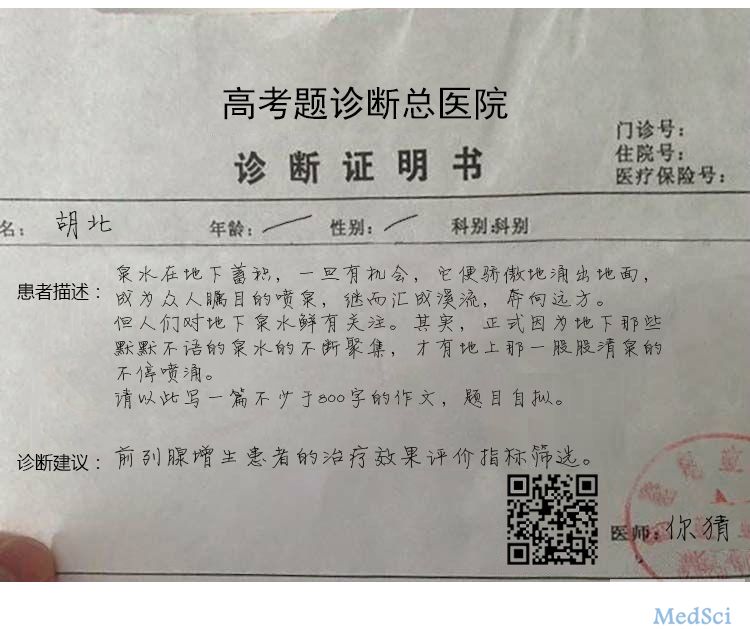 高考题诊断总医院
诊断证明书
门诊号:
住院号:
医疗保险号:
名: 胡北 年龄: 性别: 科别:科别
患者描述: 泉水在地下蓄积，一旦有机会，它便骄傲地涌出地面，
成为众人瞩目的喷泉，继而汇成溪流，奔向远方。
但人们对地下泉水鲜有关注。其实，正式因为地下那些
默默不语的泉水的不断聚集，才有地上那一股股清泉的
不停喷涌。
请以此写一篇不少于800字的作文，题目自拟。
诊断建议: 前列腺增生患者的治疗效果评价指标筛选。
医师: 你猜
MedSci